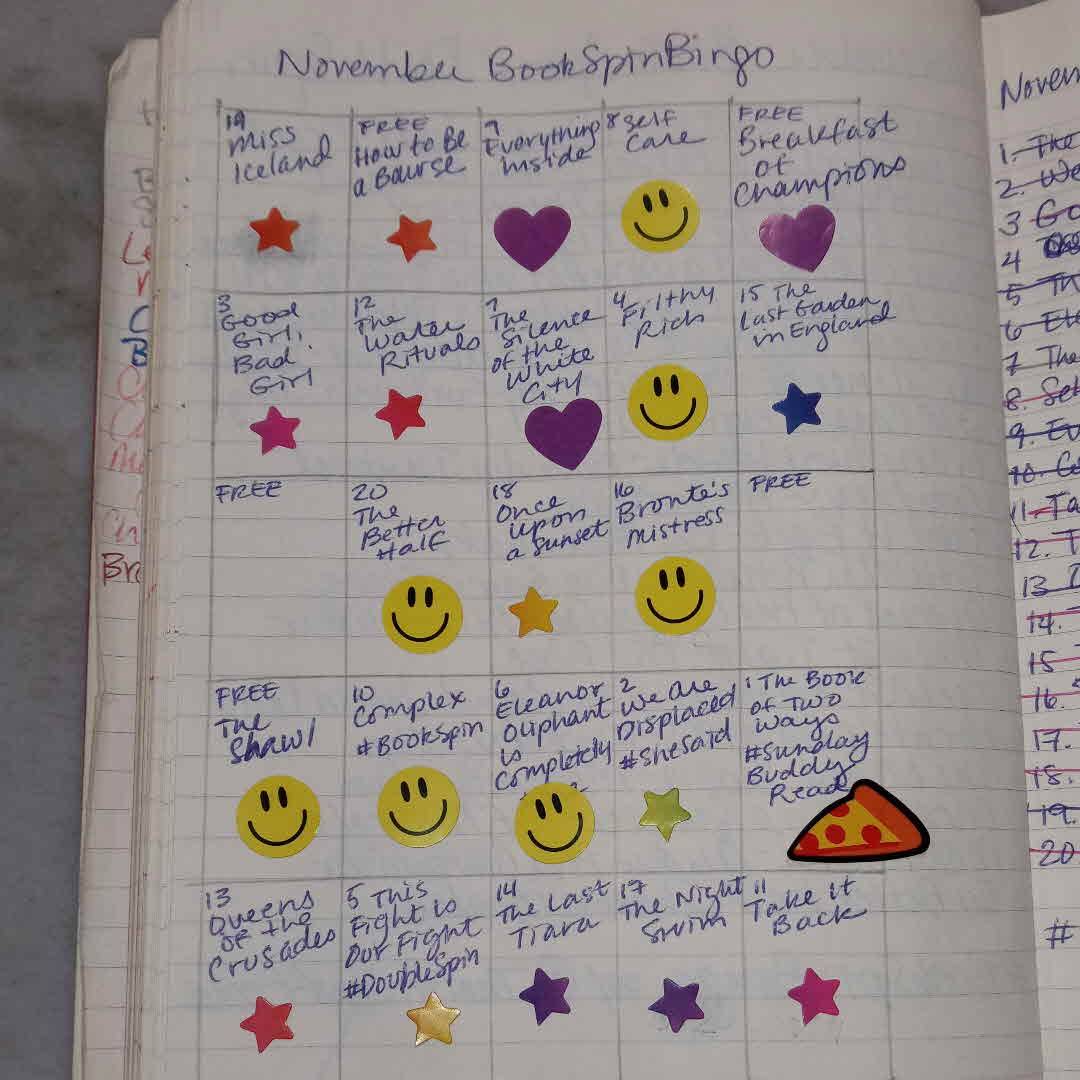 November BookSpinBingo
19
Miss
Iceland
FREE
How to Be
a Bawse
9
Everything
Inside
8 Self
Care
FREE
Breakfast
of
Champions
3
Good
Girl,
Bad
Girl
12
The
Water
Rituals
7
The
Silence
of the
White
City
4
Filthy
Rich
15 The
Last Garden
in England
FREE
20
The
Better
Half
18
Once
Upon
a Sunset
16
Bronte's
Mistress
FREE
FREE
The
Shawl
10
Complex
#BookSpin
6
Eleanor
Oliphant
is
Completely
2
We Are
Displaced
#SheSaid
1 The Book
of Two
Ways
#Sunday
Buddy
Read
13
Queens
of the
Crusades
5 This
Fight is
Our Fight
#DoubleSpin
14
The Last
Tiara
17
The Night
Swim
11
Take It
Back
Novem
1. The
2. We
3 Go
4
5 Th
6
7 The
8. Sel
9. Ev
10. Co
11. Ta
12. T
13
14.
15
16.
17.
18.
19.
20
#
Bro